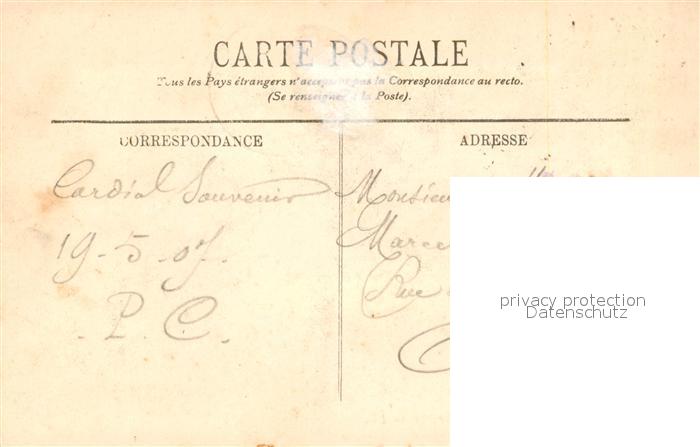 CARTE POSTALE
Tous les Pays étrangers n'acceptent pas la Correspondance au recto.
(Se renseigner à la Poste).
CORRESPONDANCE
ADRESSE
Cordial Souvenir
19-5-07.
P. C.
Monsieur
Marce
Rue
privacy protection
Datenschutz